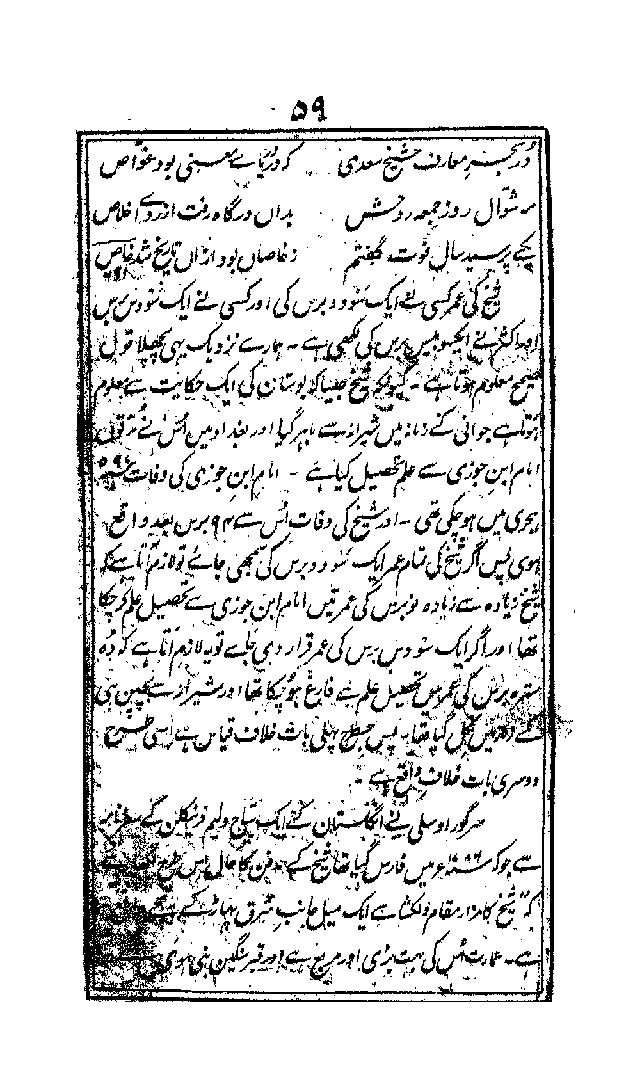 ۵۹
دُرِ بحرِ معارف شیخ سعدی کہ در دریائے معنی بود غواص
مہ شوّال روز جمعہ روحش بداں درگاہ رفت از روئے اخلاص
یکے پرسید سال فوت گفتم ز خاصاں بود ازاں تاریخ شد خاص
شیخ کی عمر کسی نے ایک سو دو برس کی اور کسی نے ایک سو دس برس
اور اکثر نے ایکسو بیس برس کی لکھی ہے - ہمارے نزدیک یہی پچھلا قول
صحیح معلوم ہوتا ہے - کیونکہ شیخ جیسا کہ بوستان کی ایک حکایت سے معلوم
ہوتا ہے جوانی کے زمانہ میں شیراز سے باہر گیا اور بغداد میں اُس نے مدتوں
امام ابن جوزی سے علم تحصیل کیا ہے - امام ابن جوزی کی وفات ۵۹۷
ہجری میں ہوچکی تھی - اور شیخ کی وفات اُس سے ۹۴ برس بعد واقع
ہوی پس اگر شیخ کی تمام عمر ایک سو دو برس کی سمجھی جائے تو لازم آتا ہے کہ
شیخ زیادہ سے زیادہ نو برس کی عمر میں امام ابن جوزی سے تحصیل علم کرچکا
تھا اور اگر ایک سو دس برس کی عمر قرار دی جاے تو یہ لازم آتا ہے کہ وہ
سترہ برس کی عمر میں تحصیل علم سے فارغ ہوچکا تھا اور شیراز سے بچپن ہی
کے میں نکل گیا تھا - پس جسطرح پہلی بات خلاف قیاس ہے اسی طرح
دوسری بات خلافِ واقع ہے -
سرگور اوسلی نے انگلستان کے ایک سیاح ولیم فرنیکلن کے سفرنامہ
سے جو کہ میں فارس گیا تھا شیخ کے مدفن کا حال اس طرح
کہ "شیخ کا مزار مقام دلکشا سے ایک میل جانب شرق پہاڑ کے نیچے
ہے - عمارت اُس کی بہت بڑی اور مربع ہے اور قبر سنگین بنی ہوی